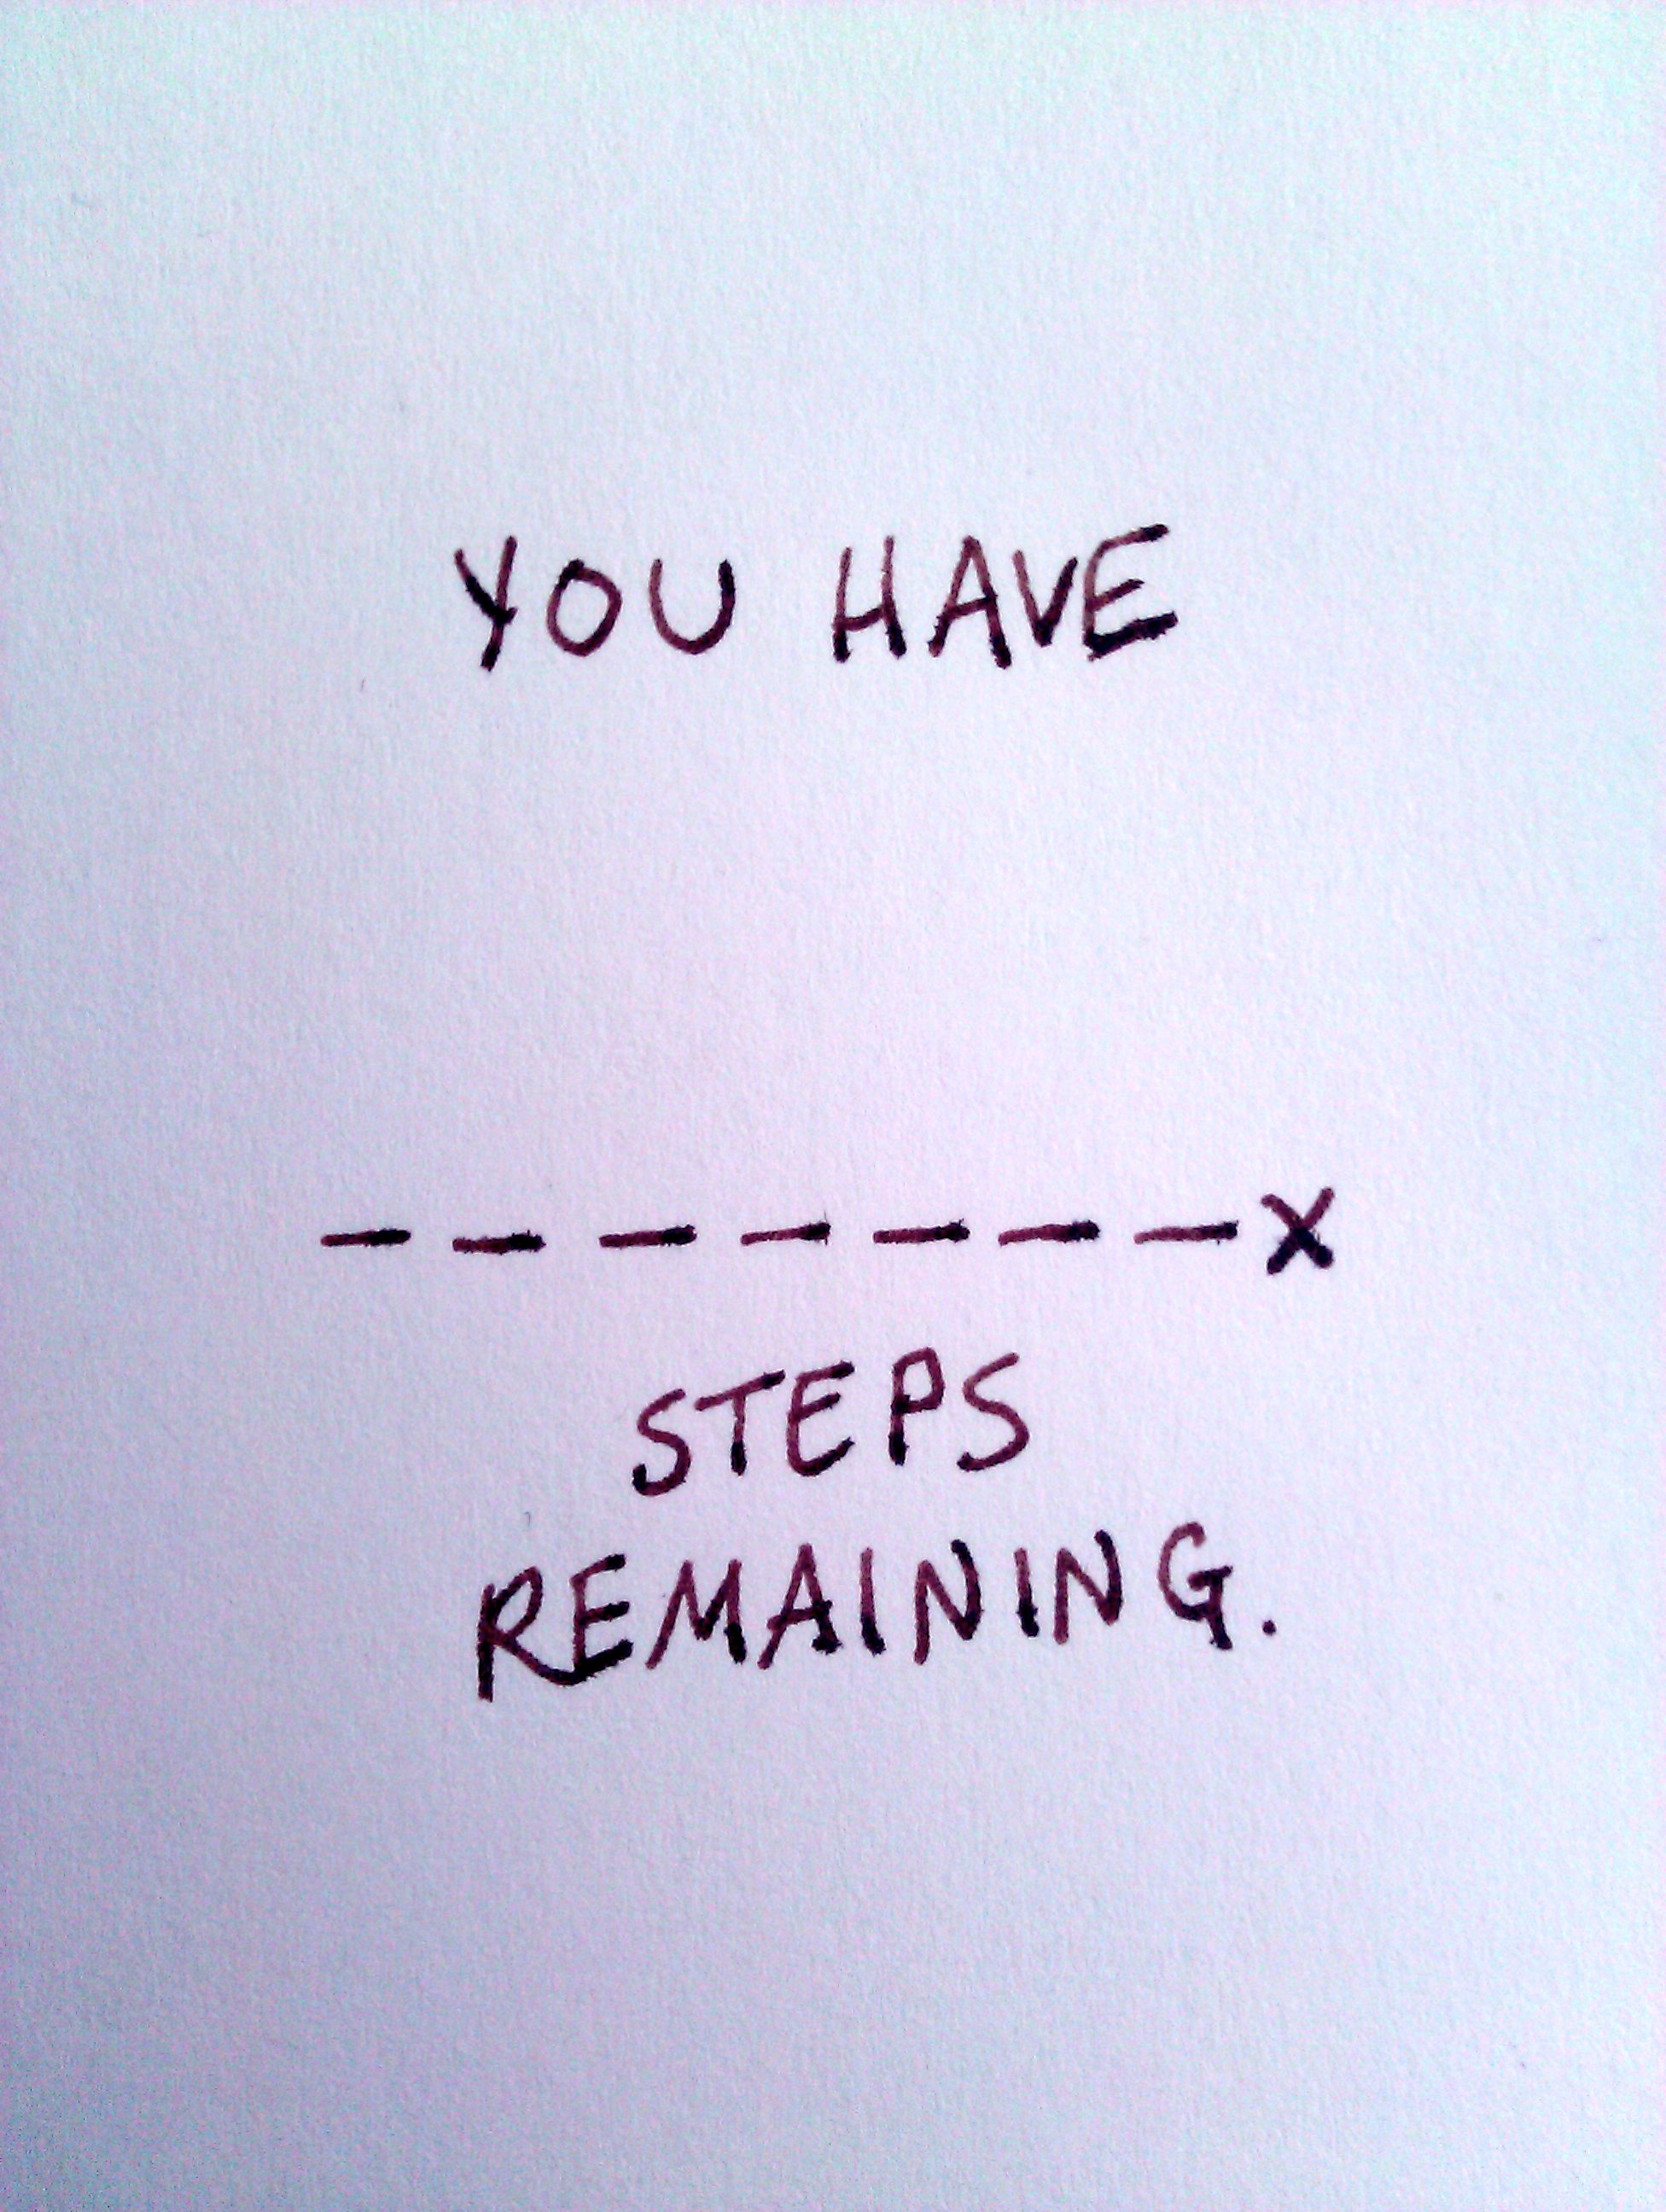 YOU HAVE
- - - - - - - X
STEPS
REMAINING.